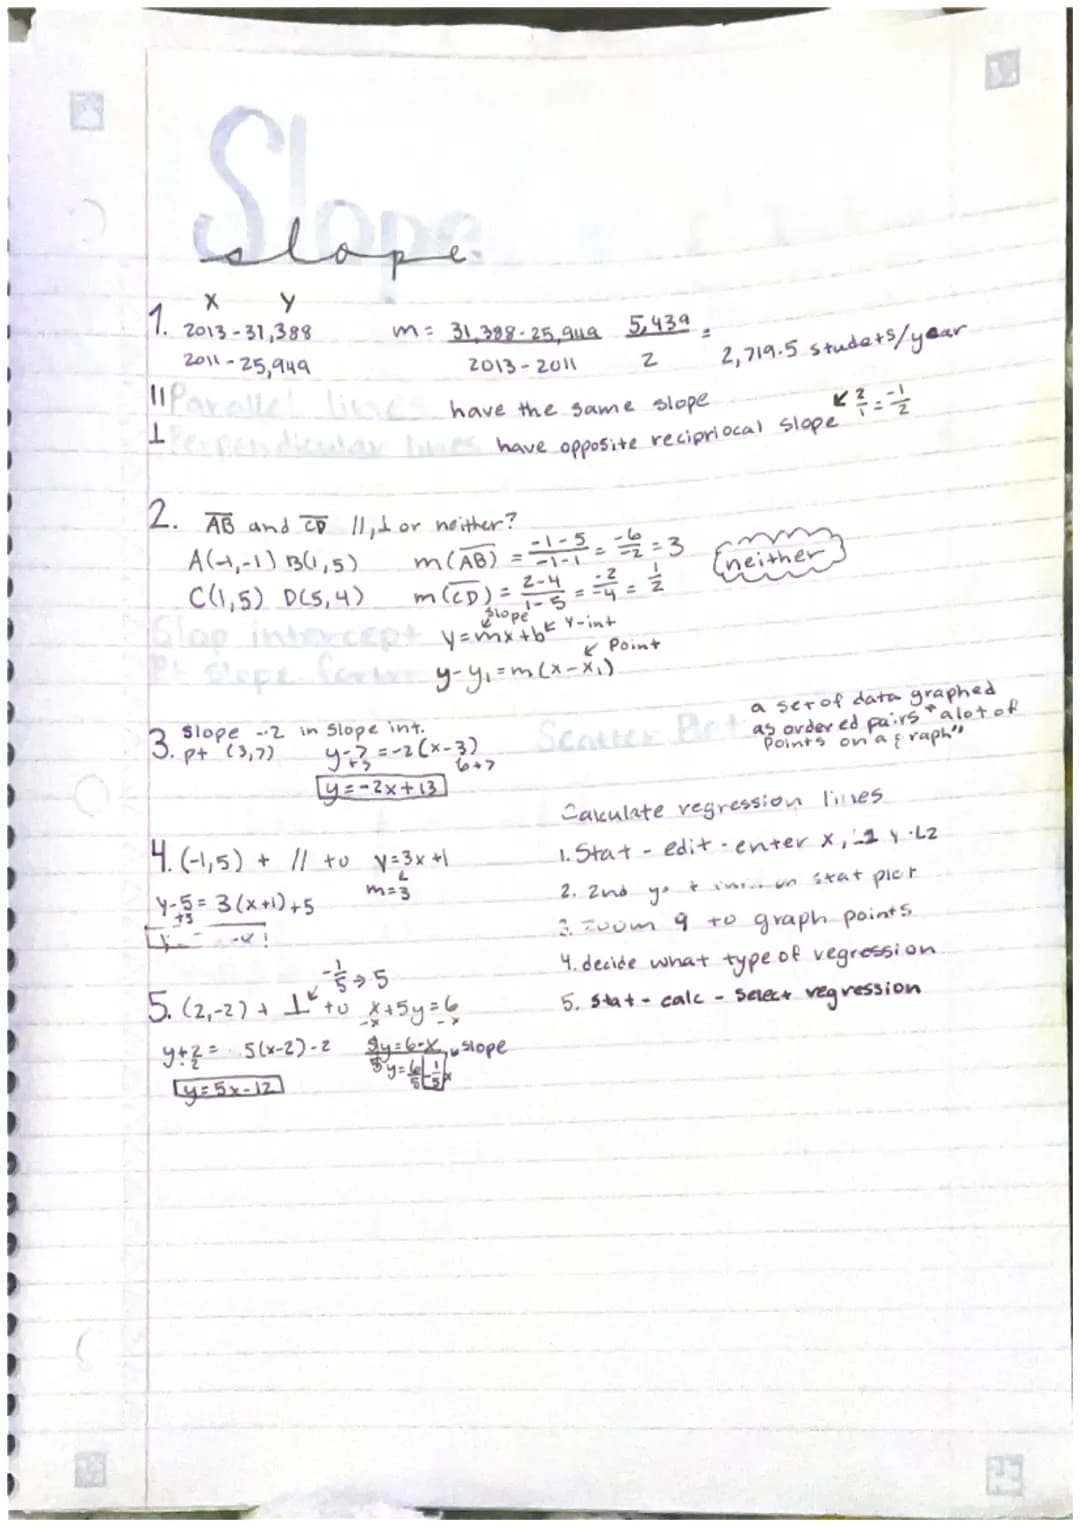 Slope
slope
X Y
1. 2013-31,388 m = 31,388-25,949 / 2013-2011 5,439 / 2 = 2,719.5 studets/year
2011-25,949
|| Parallel lines have the same slope
⊥ Perpendicular lines have opposite recipriocal slope ↙ 2/1 = -1/2
2. AB and CD //, ⊥ or neither?
A(-1,-1) B(1,5) m(AB) = -1-5 / -1-1 = -6/-2 = 3 neither
C(1,5) D(5,4) m(CD) = 2-4 / 1-5 = -2/-4 = 1/2
Slop intercept y=mx+b slope y-int
Pt slope form y-y₁=m(x-x₁) Point
3. slope -2 in slope int.
pt (3,7) y-7=-2(x-3)
+7 6+7
y=-2x+13
Scatter Plot a set of data graphed
as ordered pairs "a lot of
points on a graph"
4. (-1,5) + // to y=3x+1
m=3
y-5=3(x+1)+5
+5
5. (2,-2) + ⊥ to x+5y=6
-1/5 → 5
-x -x
y+2= 5(x-2)-2 5y=6-x slope
-2 5 y=6/5 -1/5 x
y=5x-12
Calculate regression lines
1. Stat - edit - enter x, L1 y L2
2. 2nd stat plot
3. Zoom 9 to graph points
4. decide what type of regression
5. Stat - calc - select regression